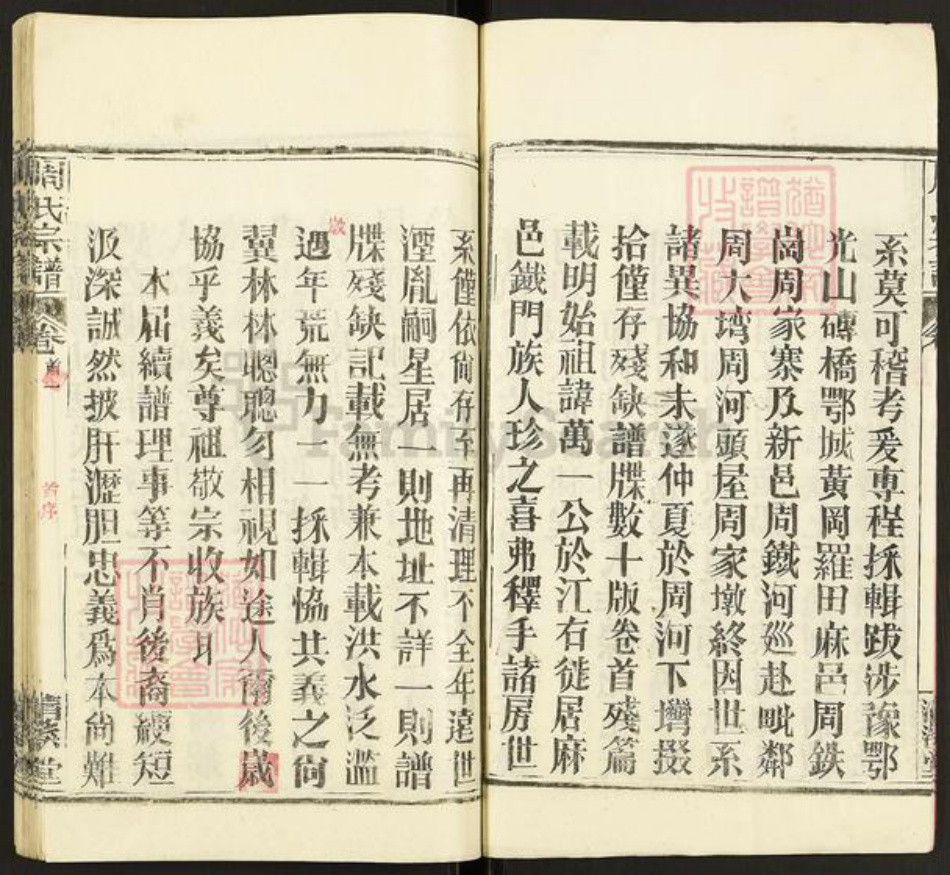 系莫可稽考爰専程採輯跋涉豫鄂
光山磚橋鄂城黃岡羅田麻邑周鉄
崗周家寨及新邑周鐵河廵赴毗鄰
周大塆周河頭屋周家墩終因世系
諸異協和未遂仲夏於周河下塆掇
拾僅存殘缺譜牒數十版卷首殘篇
載明始祖諱萬一公於江右徙居麻
邑鐵門族人珍之喜弗釋手諸房世
系僅依尙存至再清理不全年遠世
湮胤嗣星居一則地址不詳一則譜
牒殘缺記載無考兼本載洪水泛濫
遇年荒無力一一採輯恊共義之尙
冀林林聰聰勿相視如途人爾後歲
協乎義矣尊祖敬宗收族耳
本屆續譜理事等不肖後裔綆短
汲深誠然披肝瀝胆忠義爲本尙難
周氏宗譜
卷首一
首序
堂
FamilySearch